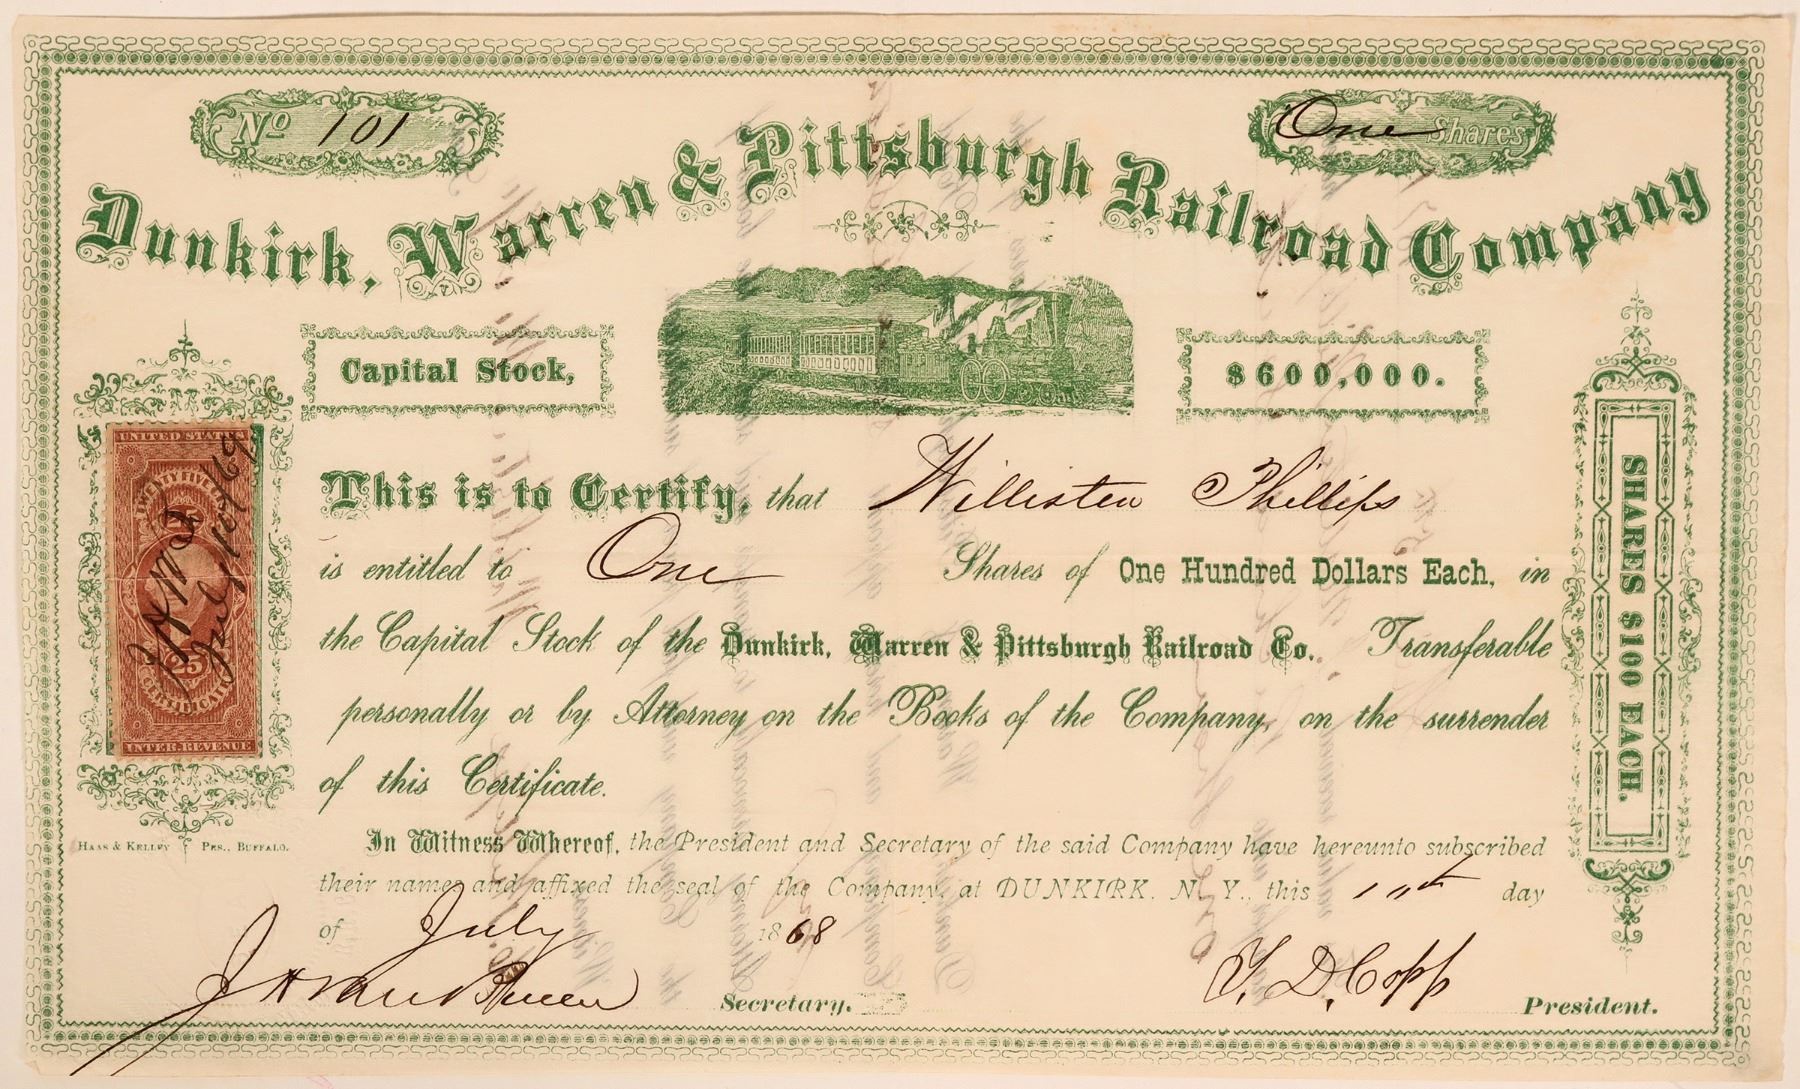 No 101
One Shares
Dunkirk, Warren & Pittsburgh Railroad Company
Capital Stock,
$600,000.
UNITED STATES
TWENTY FIVE
25
25
CERTIFICATE
INTER. REVENUE
July 10/69
This is to Certify, that Williston Phillips
is entitled to One Shares of One Hundred Dollars Each, in
the Capital Stock of the Dunkirk, Warren & Pittsburgh Railroad Co. Transferable
personally or by Attorney on the Books of the Company, on the surrender
of this Certificate.
SHARES $100 EACH.
HAAS & KELLEY PRS., BUFFALO.
In Witness Whereof, the President and Secretary of the said Company have hereunto subscribed
their names and affixed the seal of the Company, at DUNKIRK, N. Y., this day
of July 1868
J H Van Buren Secretary.
T. D. Copp President.